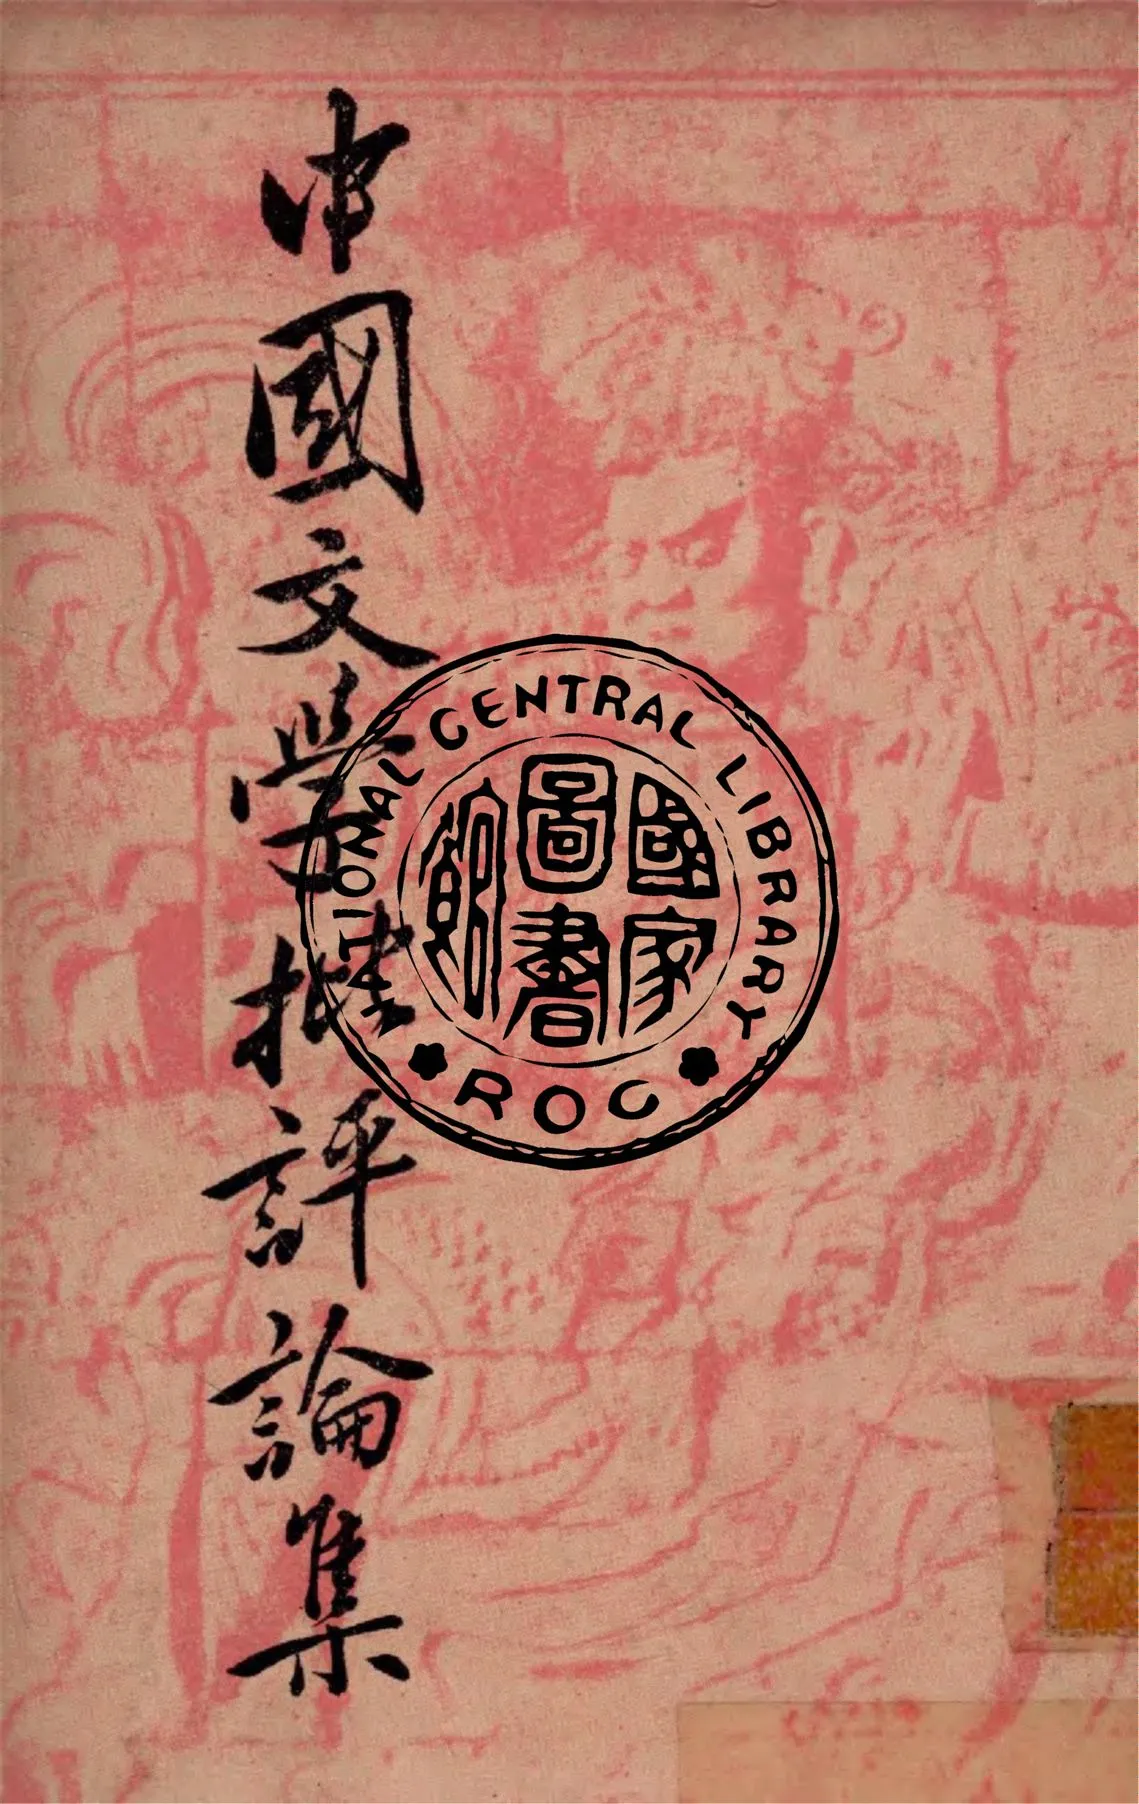 中國文學批評論集
NATIONAL CENTRAL LIBRARY
國家
圖書
館
ROC